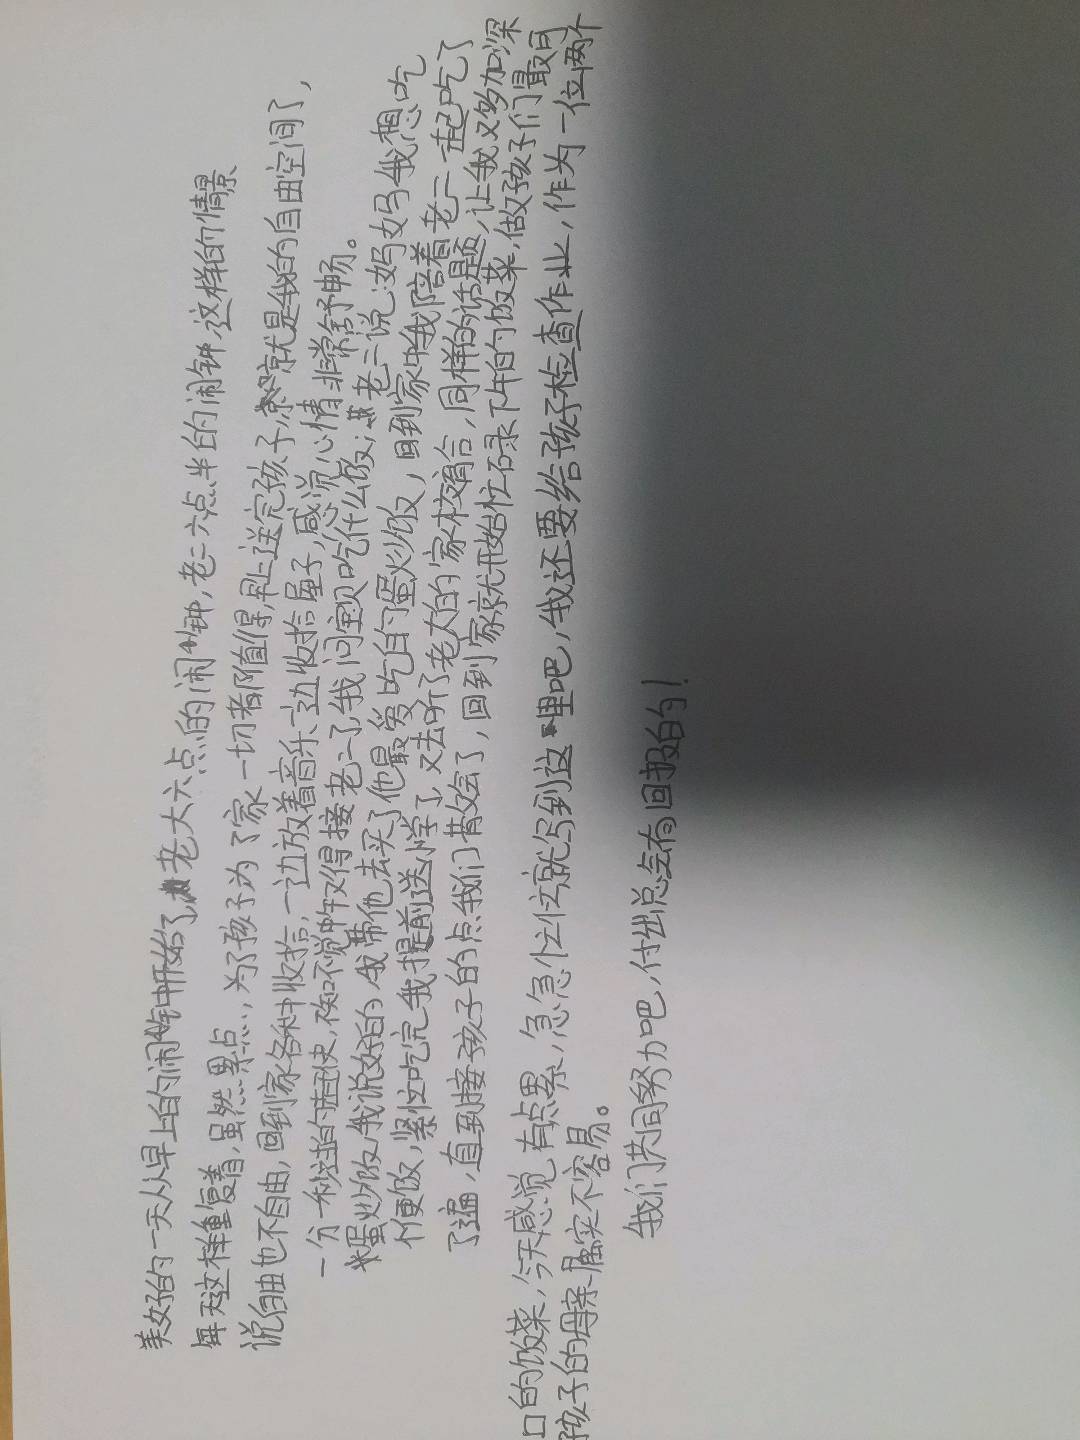 美好的一天从早上的闹钟开始了,老大六点的闹钟,老二六点半的闹钟,这样的情景
每天这样重复着,虽然累点,为了孩子为了家一切都值得,早上送完孩子,就是我的自由空间了,
说自由也不自由,回到家各种收拾,一边放着音乐一边收拾屋子,感觉心情非常舒畅。
一分一秒过的挺快,不知不觉中午又得接老二了,我问宝贝吃什么饭,老二说:妈妈我想吃
蛋炒饭,我说好的,我带他去买了他最爱吃的蛋炒饭,回到家中我陪着老二一起吃了
便饭,紧忙吃完我提前送小学了,又去听了老大的家校宿合,同样的话题,让我又多加深
了遍,直到接孩子的点我们散会了,回到家就开始忙碌下午的饭菜,做孩子们最可
口的饭菜,今天感觉有点累,急急忙忙就写到这里吧,我还要给孩子检查作业,作为一位两个
孩子的母亲属实不容易。
我们共同努力吧,付出总会有回报的!